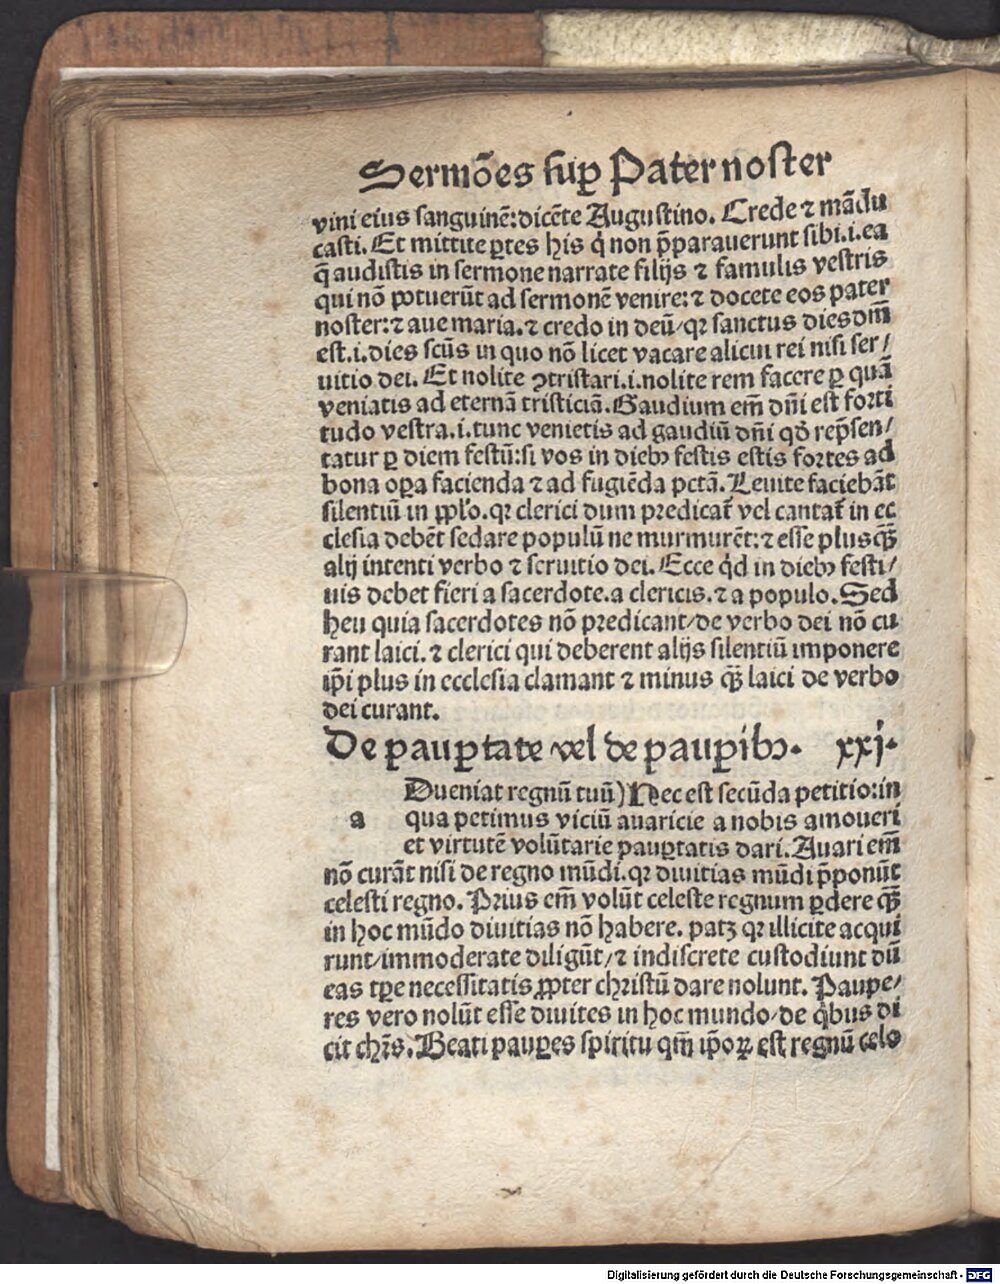 Sermões suꝑ Pater noster
vini eius sanguinē: dicēte Augustino. Crede ⁊ mādu
casti. Et mittite ꝑtes his q̇ non p̄parauerunt sibi.i.ea
q̄ audistis in sermone narrate filijs ⁊ famulis vestris
qui nō potuerūt ad sermonē venire: ⁊ docete eos pater
noster: ⁊ aue maria. ⁊ credo in deū/ qꝛ sanctus dies dn̄i
est.i.dies scūs in quo nō licet vacare alicui rei nisi ser/
uitio dei. Et nolite ꝯtristari.i.nolite rem facere ꝑ quā
veniatis ad eternā tristiciā. Gaudium em̄ dn̄i est forti
tudo vestra.i.tunc venietis ad gaudiū dn̄i qd̄ rep̄sen/
tatur ꝑ diem festū: si vos in diebꝫ festis estis fortes ad
bona oꝑa facienda ⁊ ad fugiēda pctā. Leuite faciebāt
silentiū in ꝓplo. qꝛ clerici dum predicat̄ vel cantat̄ in ec
clesia debēt sedare populū ne murmurēt: ⁊ esse plusq̄ꝫ
alij intenti verbo ⁊ seruitio dei. Ecce qd̄ in diebꝫ festi/
uis debet fieri a sacerdote. a clericis. ⁊ a populo. Sed
heu quia sacerdotes nō predicant/ de verbo dei nō cu
rant laici. ⁊ clerici qui deberent alijs silentiū imponere
ip̄i plus in ecclesia clamant ⁊ minus q̄ꝫ laici de verbo
dei curant.
De pauꝑtate vel de pauꝑibꝫ. xxj.
Dueniat regnū tuū) Nec est secūda petitio: in
a qua petimus viciū auaricie a nobis amoueri
et virtutē volūtarie pauꝑtatis dari. Auari em̄
nō curāt nisi de regno mūdi. qꝛ diuitias mūdi p̄ponūt
celesti regno. Prius em̄ volūt celeste regnum ꝑdere q̄ꝫ
in hoc mūdo diuitias nō habere. patꝫ qꝛ illicite acqui
runt/ immoderate diligūt/ ⁊ indiscrete custodiunt dū
eas tꝑe necessitatis ꝓpter christū dare nolunt. Paupe/
res vero nolūt esse diuites in hoc mundo/ de qͥbus di
cit chr̄s. Beati pauꝑes spiritu qm̄ ip̄oꝝ est regnū celo
Digitalisierung gefördert durch die Deutsche Forschungsgemeinschaft - DFG